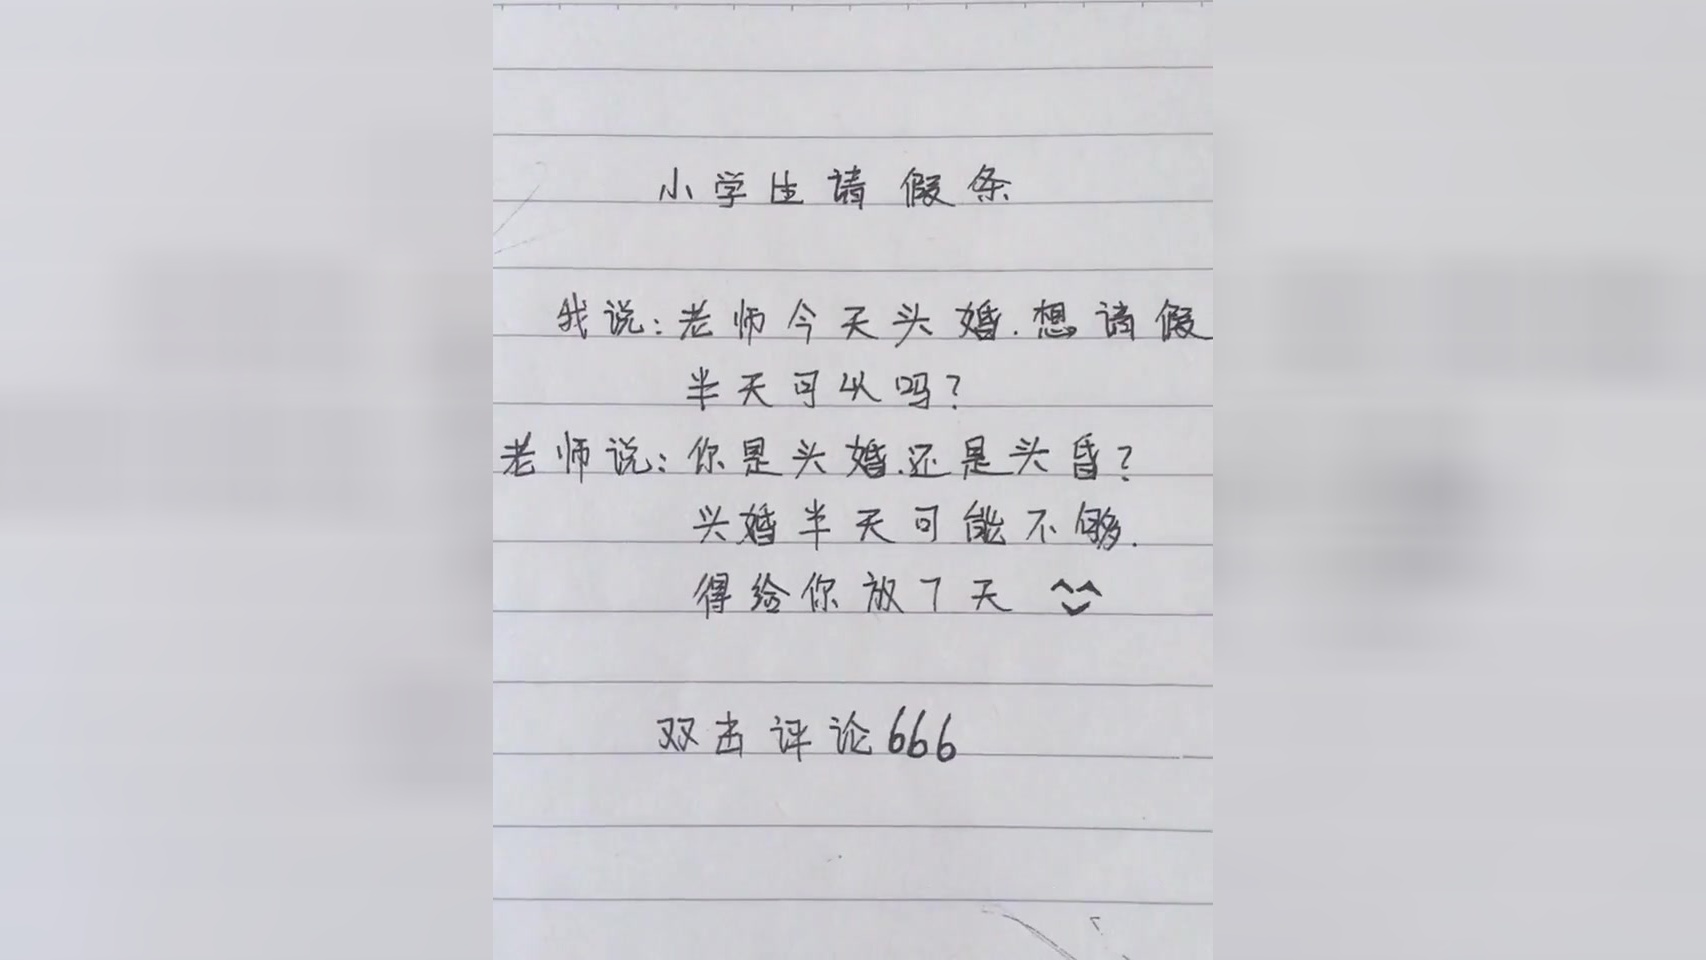 小学生请假条
我说：老师今天头婚.想请假
半天可以吗？
老师说：你是头婚.还是头昏？
头婚半天可能不够.
得给你放7天
双击评论666